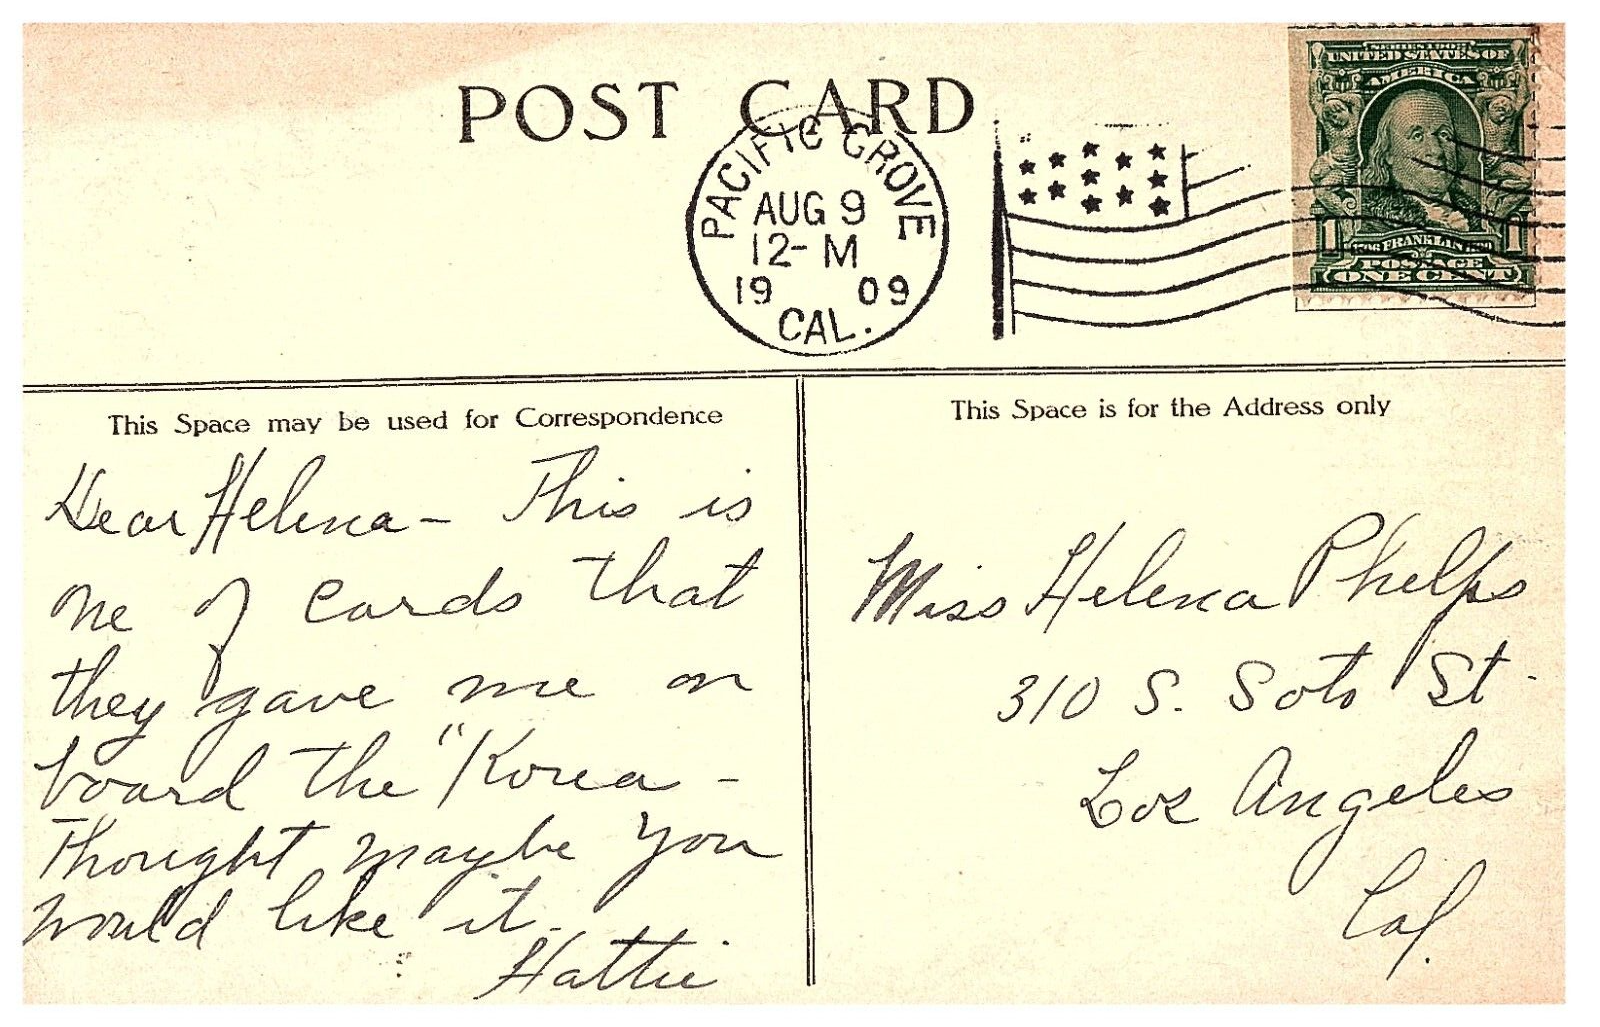 POST CARD
PACIFIC GROVE
AUG 9
12- M
19 09
CAL.
SERIES 1902
UNITED STATES OF
AMERICA
1 1
1706 FRANKLIN 1790
POSTAGE
ONE CENT
This Space may be used for Correspondence
Dear Helena - This is
one of cards that
they gave me on
board the "Korea -
Thought maybe you
would like it.
Hattie
This Space is for the Address only
Miss Helena Phelps
310 S. Soto St.
Los Angeles
Cal.